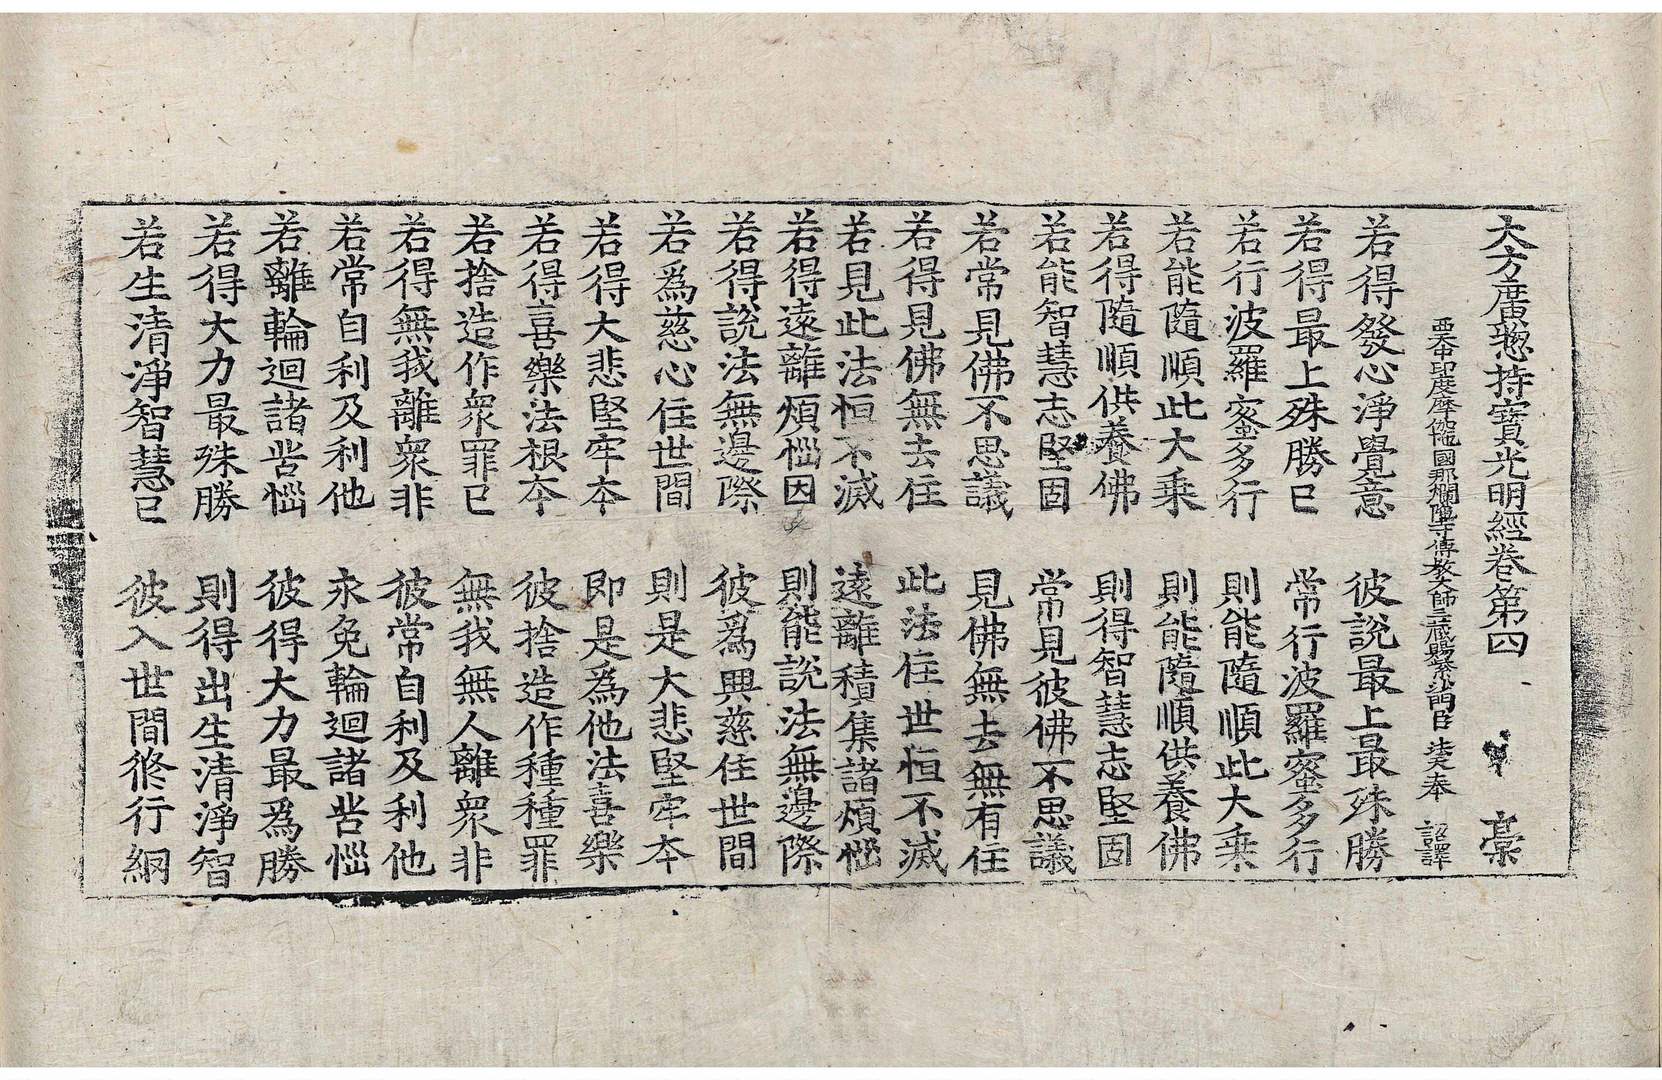 大方廣惣持寶光明經卷第四 槀
西天中印度摩伽陁國那爛陁寺傳教大師三藏賜紫沙門臣法天奉 詔譯
若得發心淨覺意 彼說最上最殊勝
若得最上殊勝已 常行波羅蜜多行
若行波羅蜜多行 則能隨順此大乘
若能隨順此大乘 則能隨順供養佛
若得隨順供養佛 則得智慧志堅固
若能智慧志堅固 常見彼佛不思議
若常見佛不思議 見佛無去無有住
若得見佛無去住 此法住世恒不滅
若見此法恒不滅 遠離積集諸煩惱
若得遠離煩惱因 則能說法無邊際
若得說法無邊際 彼爲興慈住世間
若爲慈心住世間 則是大悲堅牢本
若得大悲堅牢本 即是爲他法喜樂
若得喜樂法根本 彼捨造作種種罪
若捨造作衆罪已 無我無人離衆非
若得無我離衆非 彼常自利及利他
若常自利及利他 永免輪迴諸苦惱
若離輪迴諸苦惱 彼得大力最爲勝
若得大力最殊勝 則得出生清淨智
若生清淨智慧已 彼入世間修行網